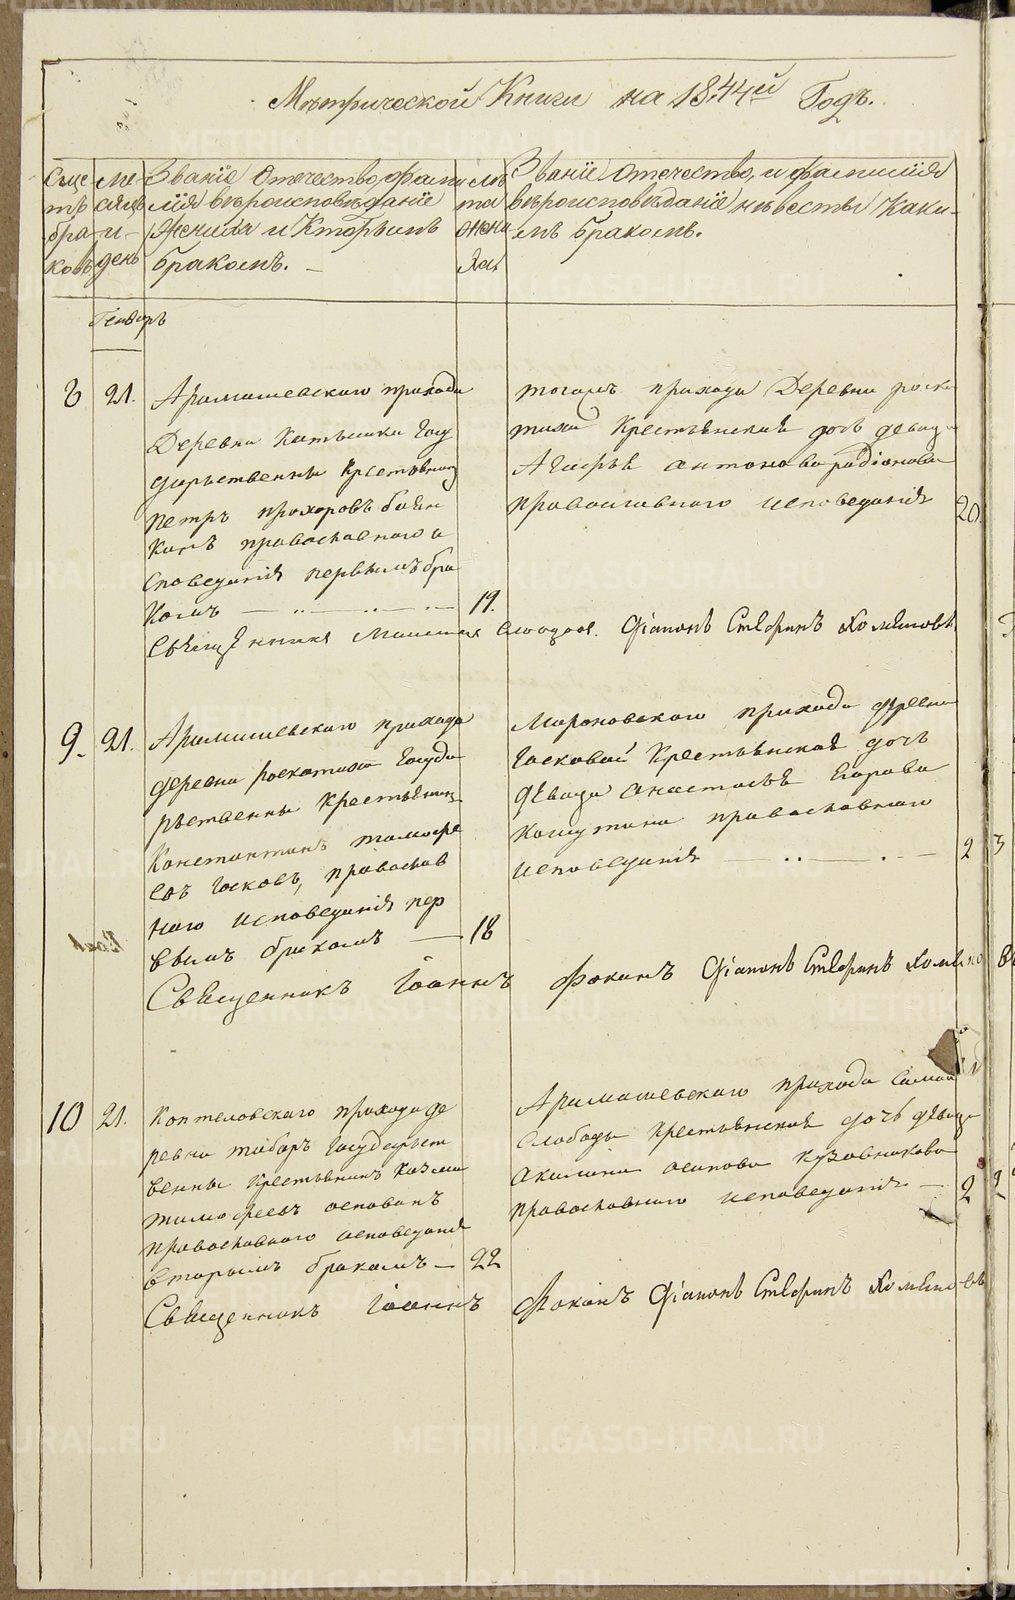 Метрической Книги на 1844й Годъ.
Счетъ браковъ
Месяцъ и день
Званiе Отечество, фамилiя вѣроисповѣданiе Жениха и Которымъ бракомъ.
Лѣта Жениха
Званiе, Отечество, и фамилiя вѣроисповѣданiе невесты Какимъ бракомъ.
Генварь
8 21. Арамашевскаго прихода
Деревни Катышки Госу
дарьственны Крестьянинъ
петръ прохоровъ
православного и
споведанiя первымъ бра
комъ 19.
тогожъ прихода Деревни роска
тихи Крестьянская дочь девица
Агафья антонова радiонова
православнаго исповеданiя 20.
Священникъ Стефанъ Хомяковъ
9. 21. Арамашевскаго прихода
деревни роскатихи Госуда
рьственны крестьянинъ
Константинъ тимофе
евъ Госковъ, православ
наго исповеданiя пер
вымъ бракомъ — 18
Мироновскаго прихода деревни
Госковой Крестьянская дочь
девица анастасья Егорова
православнаго
исповеданiя 23
Священникъ Iоаннъ Фокинъ Стефанъ Хомяковъ
10 21. Коптеловскаго прихода де
ревни таборъ Государьст
венны крестьянинъ козма
тимофеевъ
православнаго исповеданiя
вторымъ бракомъ — 22
Арамашевскаго прихода самой
слободы крестьянская дочь девица
акилина осипова кузовникова
православнаго исповеданiя — 22
Священникъ Iоаннъ Фокинъ Стефанъ Хомяковъ
METRIKI.GASO-URAL.RU